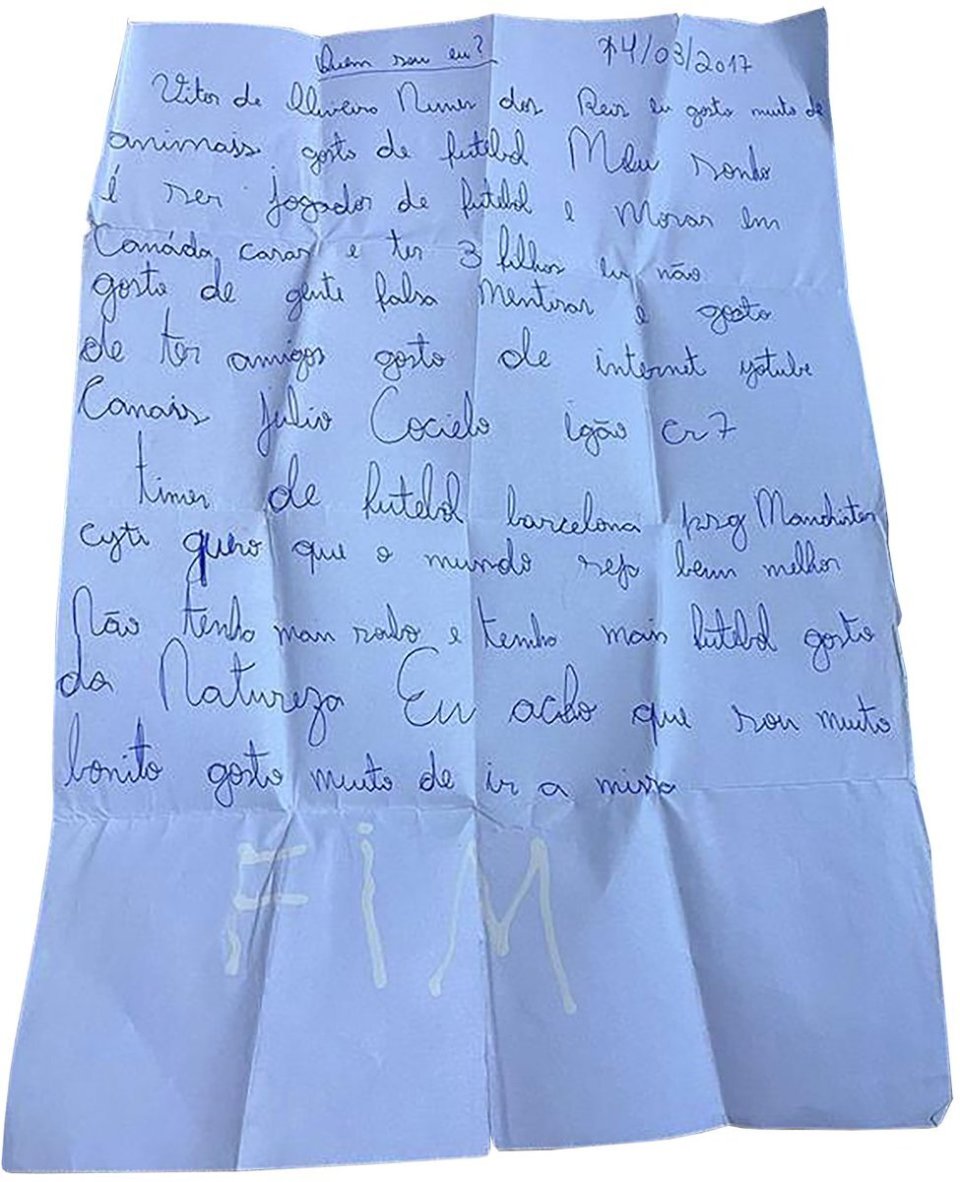 Quem sou eu? 14/03/2017
Vitor de Oliveira Nunes dos Reis eu gosto muito de
animais gosto de futebol Meu sonho
é ser jogador de futebol e Morar em
Canáda casar e ter 3 filhos eu não
gosto de gente falsa Mentiras e gosto
de ter amigos gosto de internet yotube
Canais Julio Cocielo igão cr7
times de futebol barcelona psg Manchister
cyti quero que o mundo seja bem melhor
Não tenha mais robo e tenha mais futebol gosto
da Natureza Eu acho que sou muito
bonito gosto muito de ir a missa
FiM